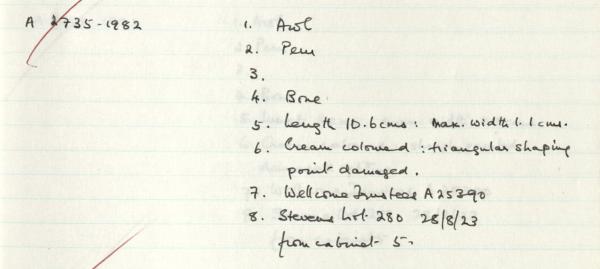 A 2735-1982
1. Awl
2. Peru
3.
4. Bone
5. Length 10.6cms: Max. width 1.1cms.
6. Cream coloured: triangular shaping
point damaged.
7. Wellcome Trustees A25390
8. Stevens Lot 280 28/8/23
from cabinet 5.